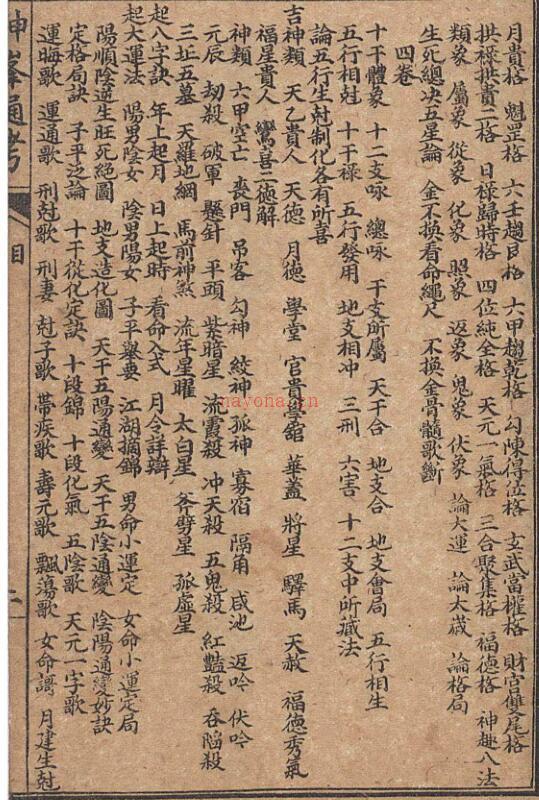 月貴格 魁罡格 六壬趨艮格 六甲趨乾格 勾陳得位格 玄武當權格 財官雙尾格
拱祿拱貴二格 日祿歸時格 四位純全格 天元一氣格 三合聚集格 福德格 神趣八法
類象 屬象 從象 化象 照象 返象 鬼象 伏象 論大運 論太歲 論格局
生死總决五星論 金不換看命繩尺 不換金骨髓歌斷
四卷
十干體象 十二支咏 總咏 干支所屬 天干合 地支合 地支會局 五行相生
五行相尅 十干祿 五行發用 地支相冲 三刑 六害 十二支中所藏法
論五行生尅制化各有所喜
吉神類 天乙貴人 天德 月德 學堂 官貴學舘 華蓋 將星 驛馬 天赦 福德秀氣
福星貴人 鸞喜二德解
神類 六甲空亡 喪門 吊客 勾神 絞神 孤神 寡宿 隔角 咸池 返吟 伏吟
元辰 劫殺 破軍 懸針 平頭 紫暗星 流霞殺 冲天殺 五鬼殺 紅艷殺 吞陷殺
三坵五墓 天羅地網 馬前神煞 流年星曜 太白星 斧劈星 孤虛星
起八字訣 年上起月 日上起時 看命入式 月令詳辯
起大運法 陽男陰女 陰男陽女 子平舉要 江湖摘錦 男命小運定 女命小運定局
陽順陰逆生旺死絕圖 地支造化圖 天干五陽通變 天干五陰通變 陰陽通變妙訣
定格局訣 子平泛論 十干從化定訣 十段錦 十段化氣 五陰歌 天元一字歌
運晦歌 運通歌 刑尅歌 刑妻 尅子歌 帶疾歌 壽元歌 飄蕩歌 女命謌 月建生尅
神峯通考
目
二
nayona.cn